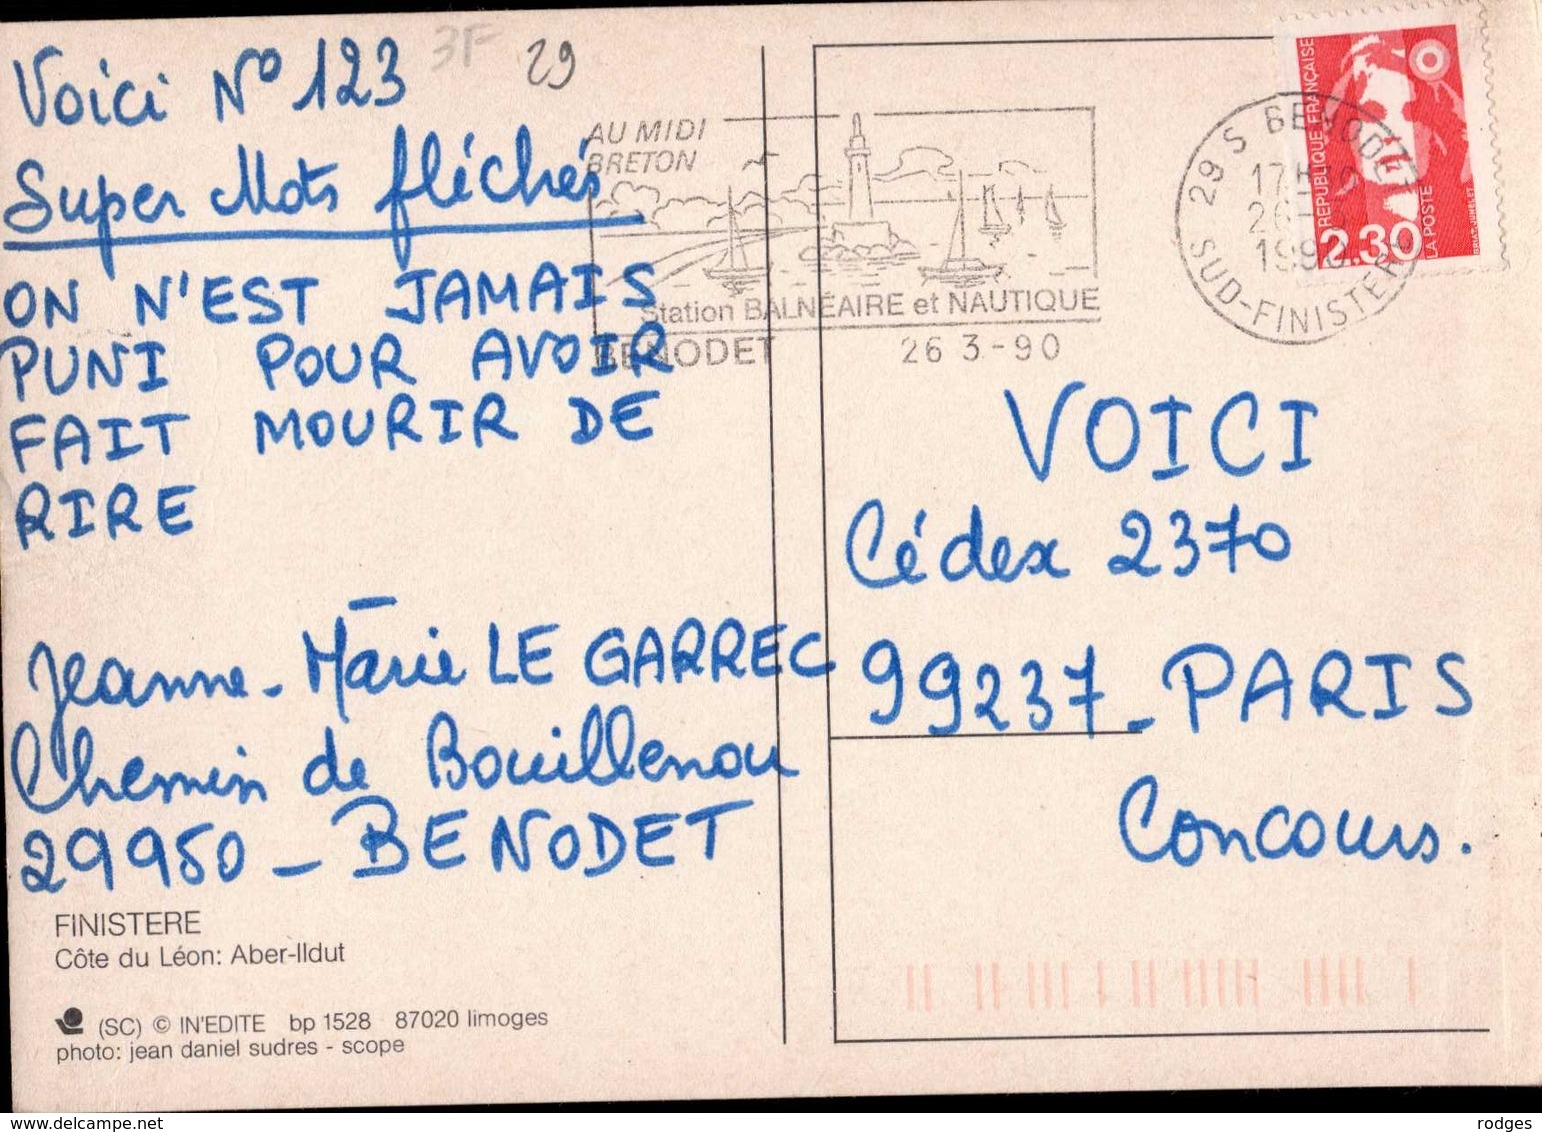 Voici N° 123
3F
29
Super Mots fléchés
ON N'EST JAMAIS
PUNI POUR AVOIR
FAIT MOURIR DE
RIRE
Jeanne-Marie LE GARREC
Chemin de Bouillenou
29950 - BENODET
FINISTERE
Côte du Léon: Aber-Ildut
(SC) © IN'EDITE bp 1528 87020 limoges
photo: jean daniel sudres - scope
AU MIDI
BRETON
Station BALNÉAIRE et NAUTIQUE
BENODET 26 3-90
29 S BENODET
17H
26
1990
SUD-FINISTERE
REPUBLIQUE FRANÇAISE
2.30
LA POSTE
VOICI
Cédex 2370
99237 - PARIS
Concours.
www.delcampe.net
rodges